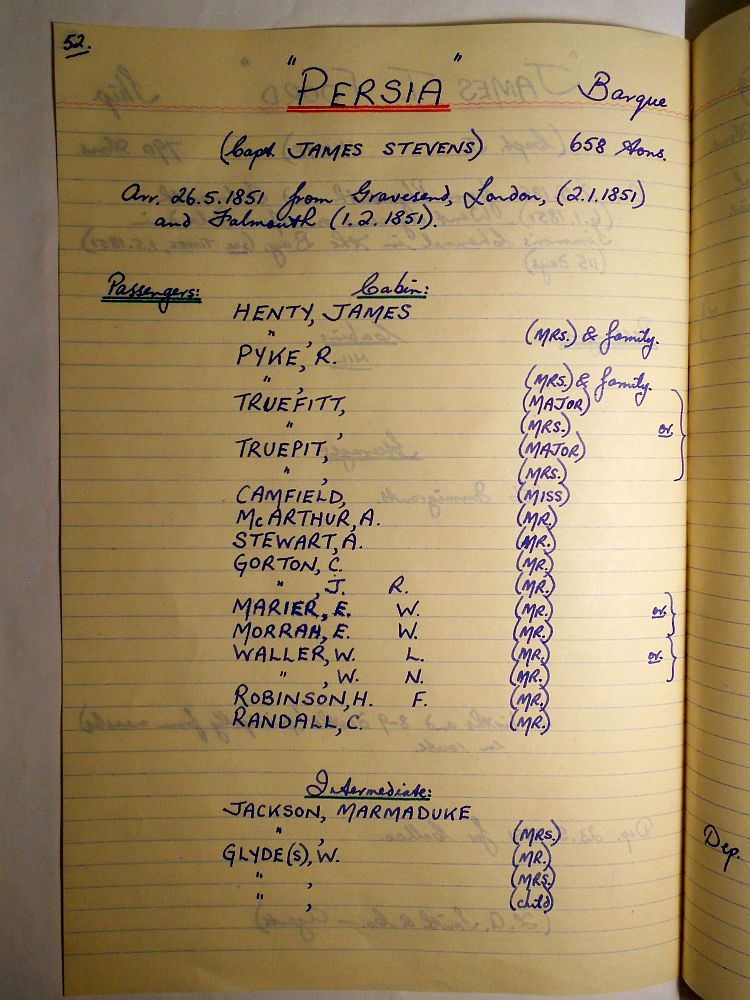 52.
"PERSIA" Barque
(Capt. JAMES STEVENS) 658 tons.
Arr. 26.5.1851 from Gravesend, London, (2.1.1851)
and Falmouth (1.2.1851).
Passengers: Cabin:
HENTY, JAMES
" , (MRS.) & family.
PYKE, R.
" , (MRS.) & family.
TRUEFITT, (MAJOR)
" , (MRS.) or
TRUEPIT, (MAJOR)
" , (MRS.)
CAMFIELD, (MISS)
McARTHUR, A. (MR.)
STEWART, A. (MR.)
GORTON, C. (MR.)
" , J. R. (MR.)
MARIER, E. W. (MR.) or
MORRAH, E. W. (MR.)
WALLER, W. L. (MR.) or
" , W. N. (MR.)
ROBINSON, H. F. (MR.)
RANDALL, C. (MR.)
Intermediate:
JACKSON, MARMADUKE
" , (MRS.)
GLYDE(S), W. (MR.)
" , (MRS.)
" , (child)
Dep.